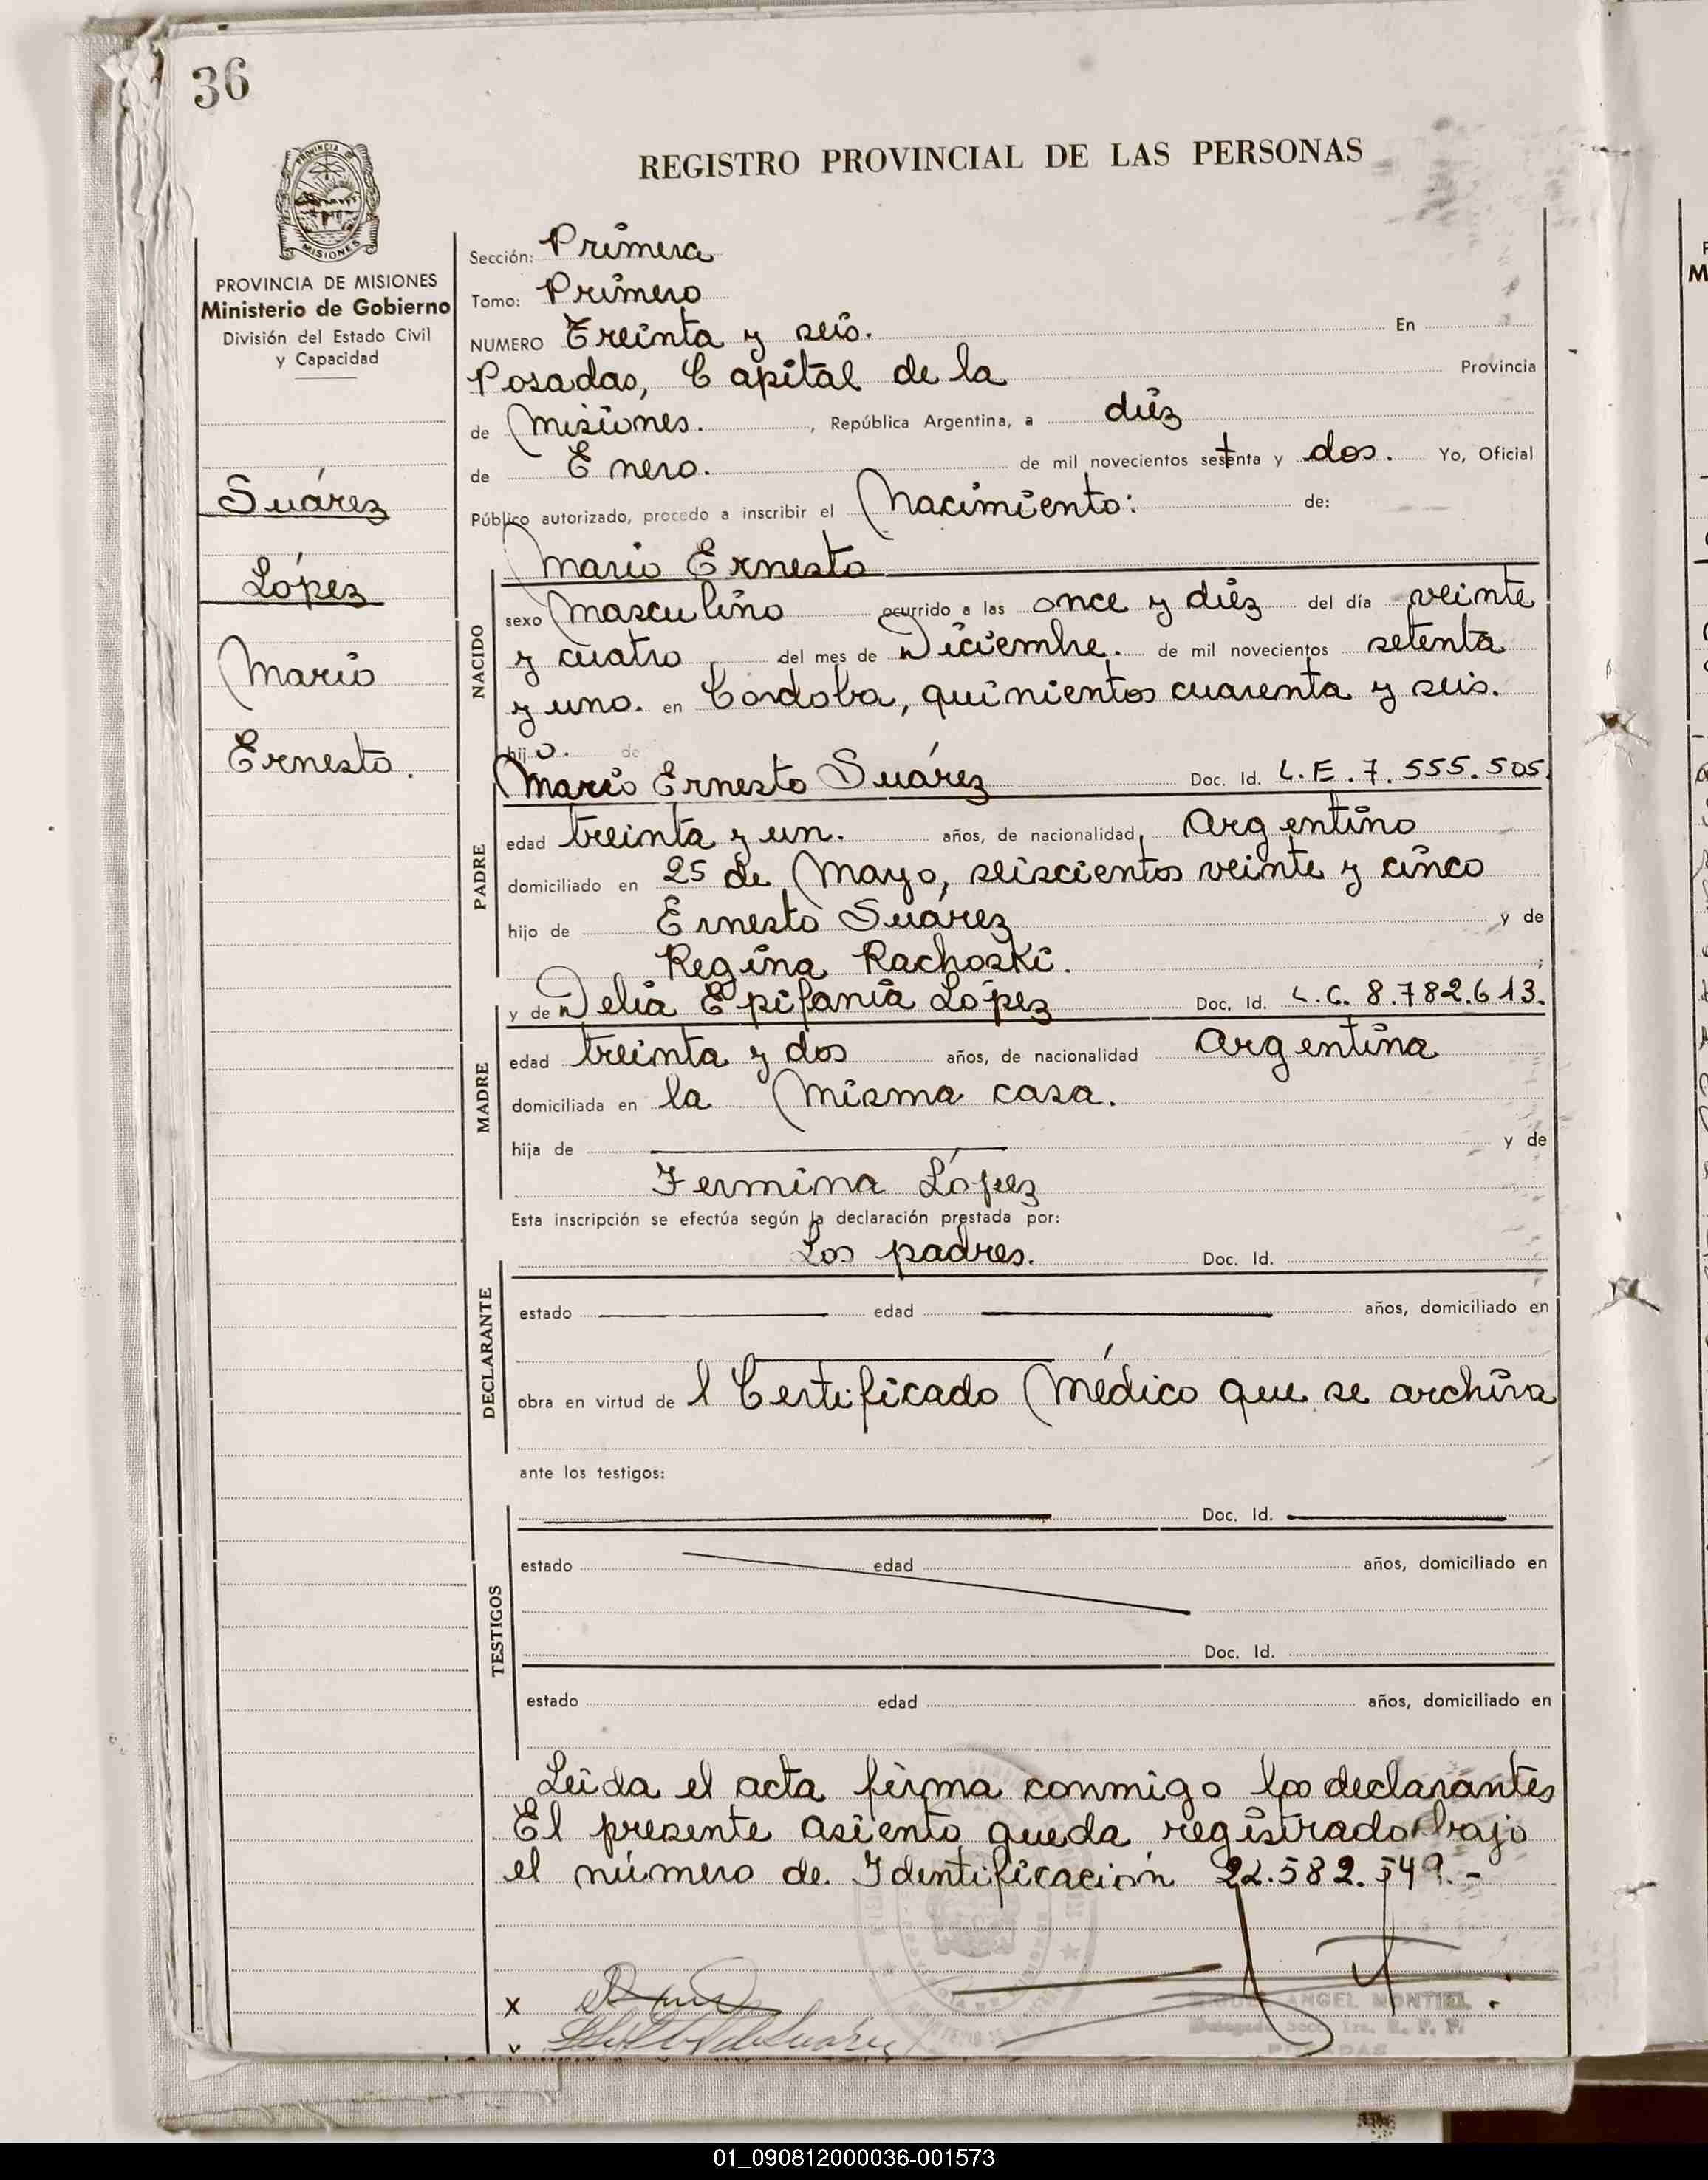 36
REGISTRO PROVINCIAL DE LAS PERSONAS
PROVINCIA DE
MISIONES
PROVINCIA DE MISIONES
Ministerio de Gobierno
División del Estado Civil
y Capacidad
Suárez
López
Mario
Ernesto.
Sección: Primera
Tomo: Primero
NUMERO Treinta y seis. En
Posadas, Capital de la Provincia
de Misiones. , República Argentina, a diéz
de Enero. de mil novecientos setenta y dos. Yo, Oficial
Público autorizado, procedo a inscribir el Nacimiento: de:
Mario Ernesto
NACIDO
sexo Masculino ocurrido a las once y diéz del día veinte
y cuatro, del mes de Diciembre. de mil novecientos setenta
y uno. en Cordoba, quinientos cuarenta y seis.
hijo. de
PADRE
Mario Ernesto Suárez Doc. Id. L.E. 7.555.505.
edad treinta y un. años, de nacionalidad, Argentino
domiciliado en 25 de Mayo, seiscientos veinte y cinco
hijo de Ernesto Suárez y de
Regina Rachoski. ;
MADRE
y de Delia Epifania López Doc. Id. L.C. 8.782.613.
edad treinta y dos años, de nacionalidad Argentina
domiciliada en la Misma casa.
hija de y de
Fermina López
Esta inscripción se efectúa según la declaración prestada por:
DECLARANTE
Los padres. Doc. Id.
estado edad años, domiciliado en
obra en virtud de l Certificado Médico que se archiva
ante los testigos:
TESTIGOS
Doc. Id.
estado edad años, domiciliado en
Doc. Id.
estado edad años, domiciliado en
Leida el acta firma conmigo los declarantes
El presente asiento queda registrado bajo
el número de Identificación 22.582.549.-
X
MIGUEL ANGEL MONTIEL
POSADAS
01_090812000036-001573